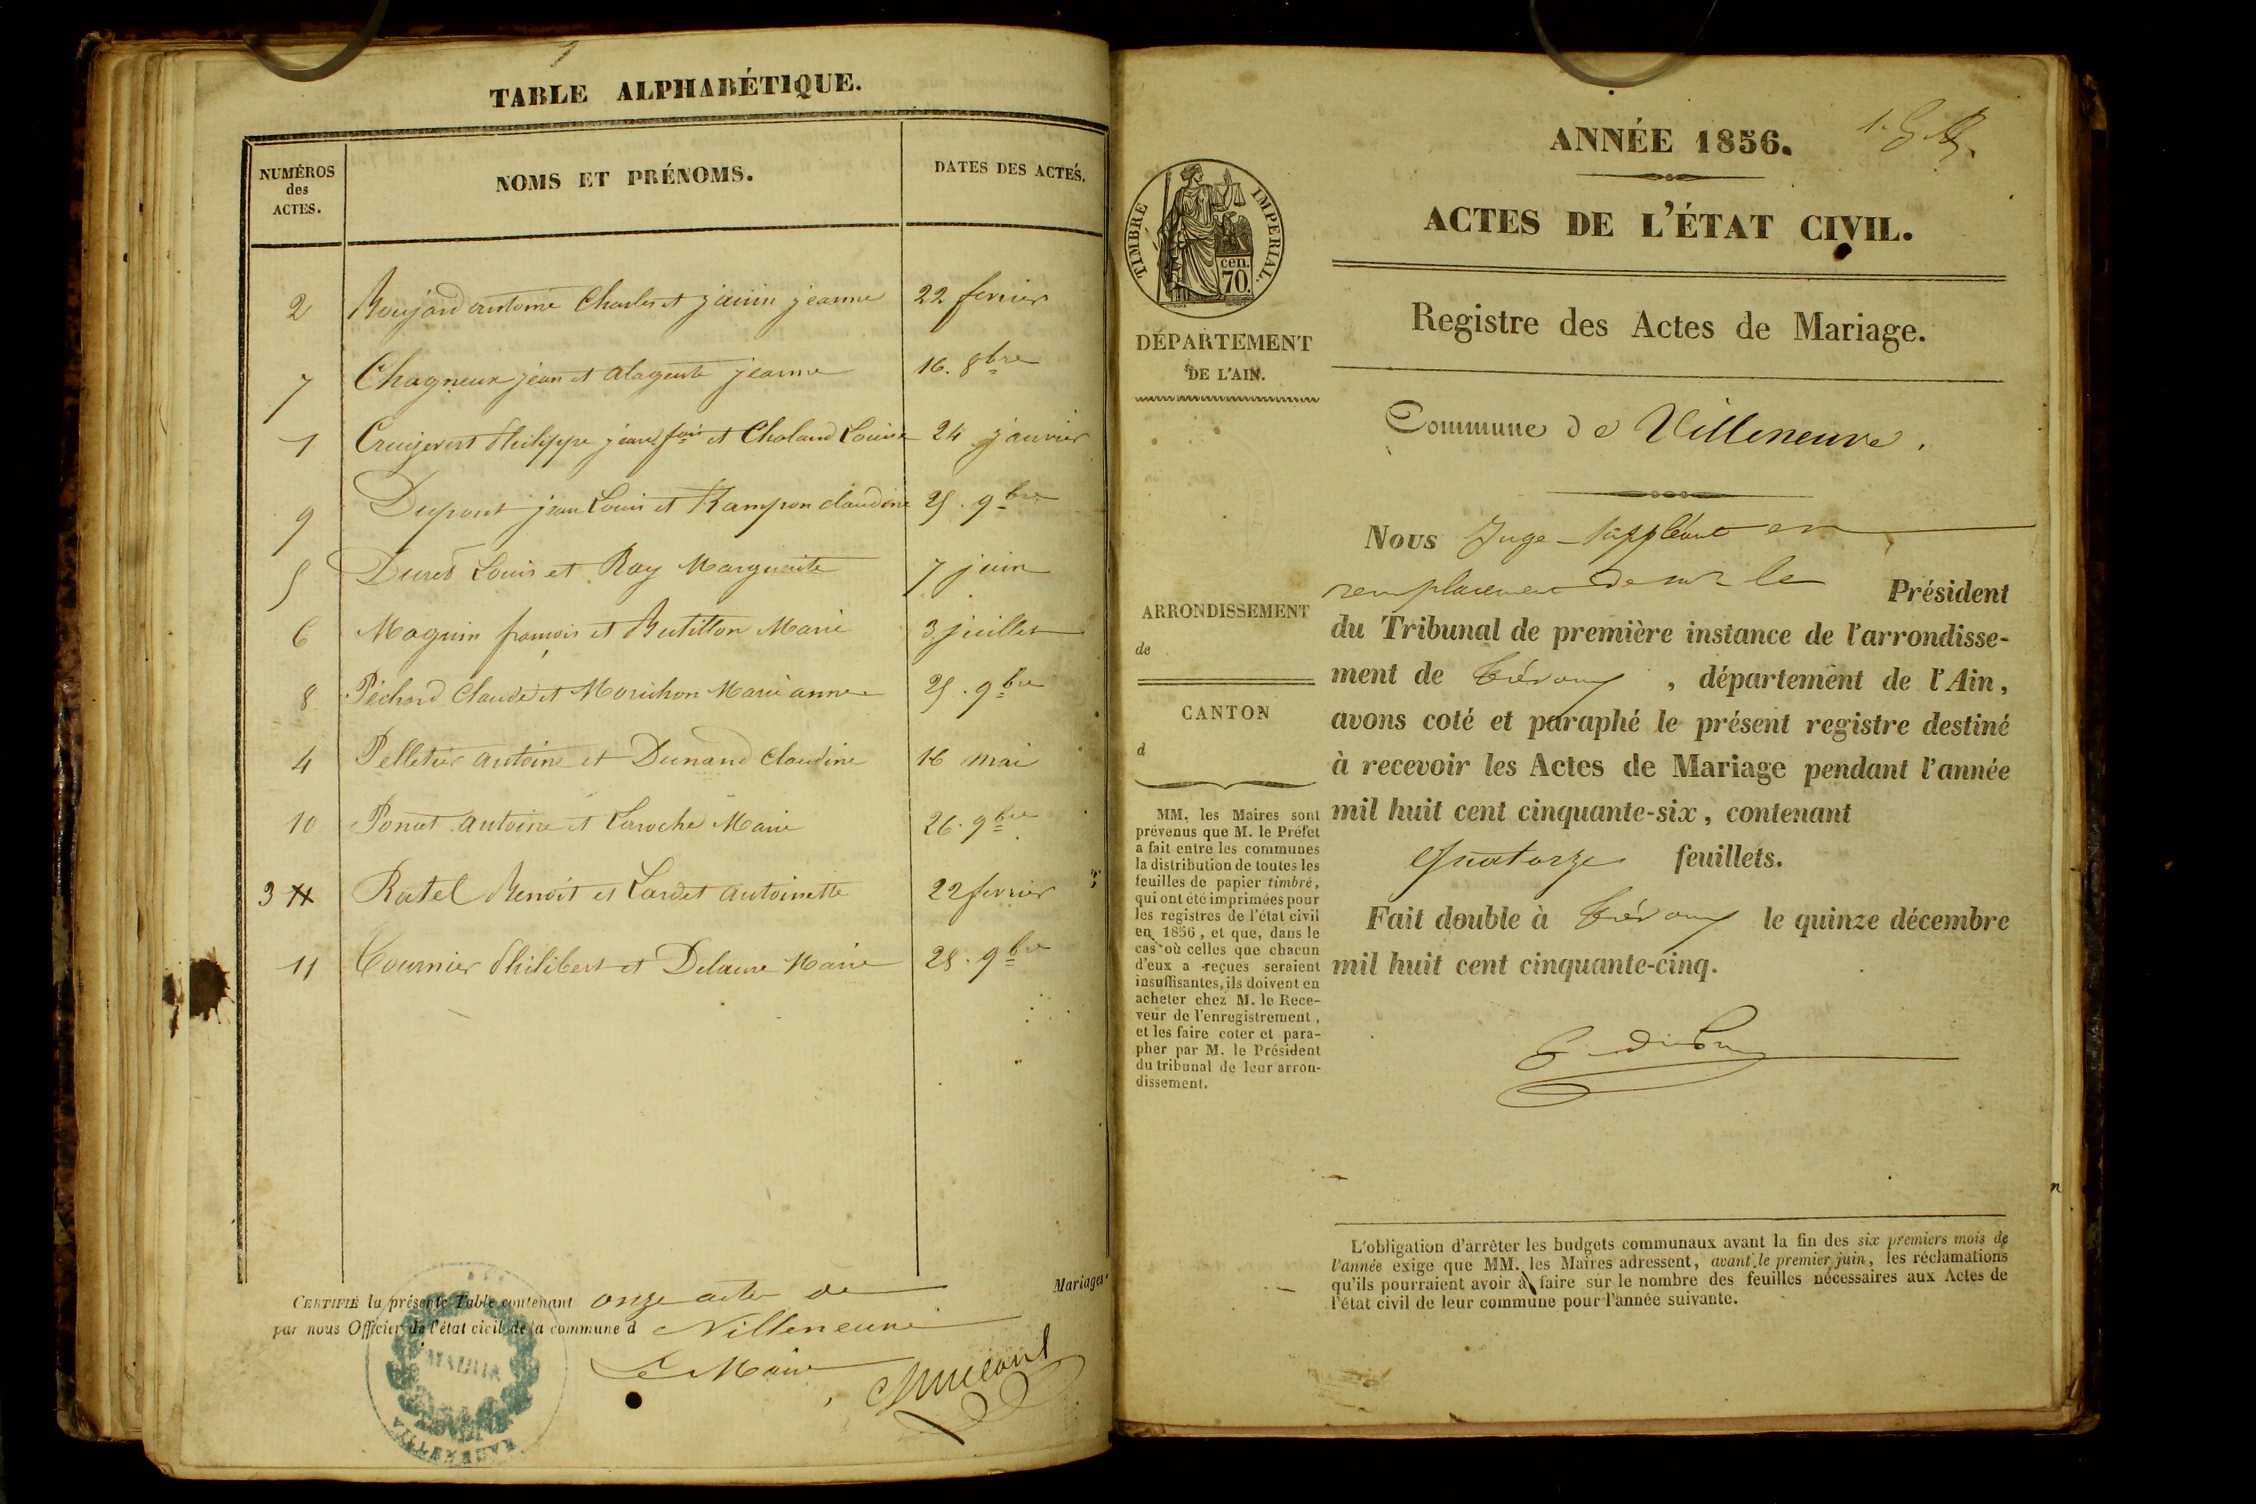 TABLE ALPHABÉTIQUE.
NUMÉROS
des
ACTES.
NOMS ET PRÉNOMS.
DATES DES ACTES.
2 antoine Charles et janin jeanne 22 fevrier
7 Chagneux jean et jeanne 16. 8bre
1 Philippe jean fois et Choland Louise 24 janvier
9 Dupont jean Louis et Rampon claudine 25. 9bre
5 Duret Louis et Ray Marguerite 7 juin
6 Maguin françois et Butillon Marie 3 juillet
8 Péchard Claude et Morichon Marie anne 25. 9bre
4 Pelletier antoine et Dunand Claudine 16 mai
10 Ponat antoine et Laroche Marie 26. 9bre
3 Ratel Benoit et Lardet antoinette 22 fevrier
11 Tournier Philibert et Delaure Marie 28. 9bre
Mariages
CERTIFIÉ la présente Table contenant onze actes de
par nous Officier de l'état civil de la commune d Villeneuve
Le Maire
MAIRIE
VILLENEUVE
ANNÉE 1856.
ACTES DE L'ÉTAT CIVIL.
TIMBRE IMPERIAL.
cen.
70.
DÉPARTEMENT
DE L'AIN.
Registre des Actes de Mariage.
Commune de Villeneuve.
ARRONDISSEMENT
de
CANTON
d
MM. les Maires sont
prévenus que M. le Préfet
a fait entre les communes
la distribution de toutes les
feuilles de papier timbré,
qui ont été imprimées pour
les registres de l'état civil
en 1856, et que, dans le
cas où celles que chacun
d'eux a reçues seraient
insuffisantes, ils doivent en
acheter chez M. le Rece-
veur de l'enregistrement,
et les faire coter et para-
pher par M. le Président
du tribunal de leur arron-
dissement.
Nous Juge suppléant en
remplacement de mr le Président
du Tribunal de première instance de l'arrondisse-
ment de Trévoux, département de l'Ain,
avons coté et paraphé le présent registre destiné
à recevoir les Actes de Mariage pendant l'année
mil huit cent cinquante-six, contenant
quatorze feuillets.
Fait double à Trévoux le quinze décembre
mil huit cent cinquante-cinq.
L'obligation d'arrêter les budgets communaux avant la fin des six premiers mois de
l'année exige que MM. les Maires adressent, avant le premier juin, les réclamations
qu'ils pourraient avoir à faire sur le nombre des feuilles nécessaires aux Actes de
l'état civil de leur commune pour l'année suivante.